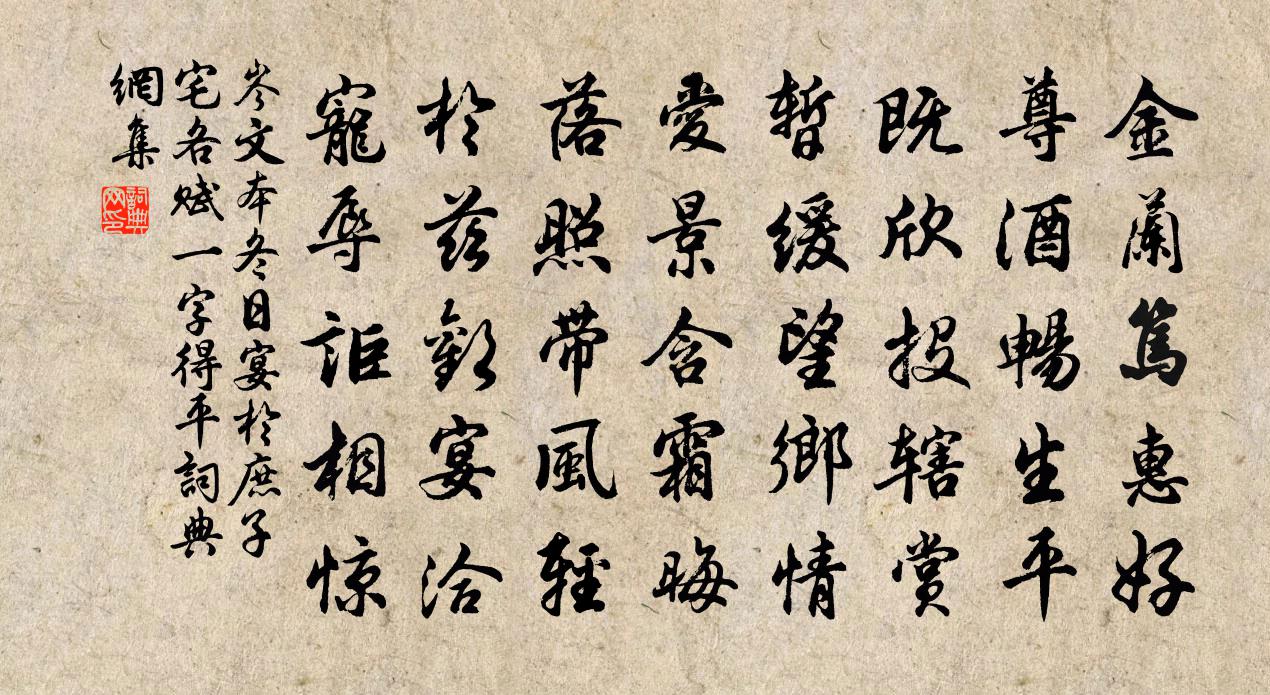 金蘭篤惠好
尊酒暢生平
既欣投轄賞
暫緩望鄉情
愛景含霜晦
落照帶風輕
於茲歡宴洽
寵辱詎相惊
岑文本冬日宴於庶子
宅各賦一字得平詞典
網集
詞典
网印